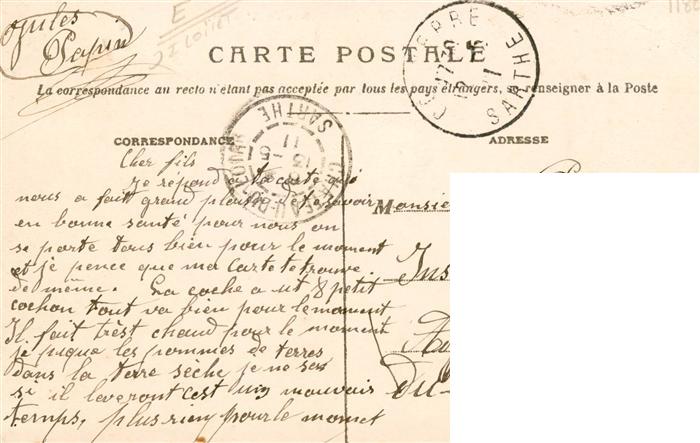 Jules
Papin
E
CARTE POSTALE
La correspondance au recto n'étant pas acceptée par tous les pays étrangers, se renseigner à la Poste
SARTHE
SARTHE
CORRESPONDANCE
ADRESSE
Cher fils
Je répond a ta carte qui
nous a fait grand plaisir de te savoir
en bonne santé pour nous on
se porte tous bien pour le moment
et je pence que ma carte te trouve
de même. La coche a ut 8 petit
cochon tout va bien pour le moment
Il fait trèst chaud pour le moment
je pique les pommes de terres
dans la terre sèche je ne sais
si il leveront cest un mauvais
temps, plus rien pour le momet
Monsie
Ins
Du